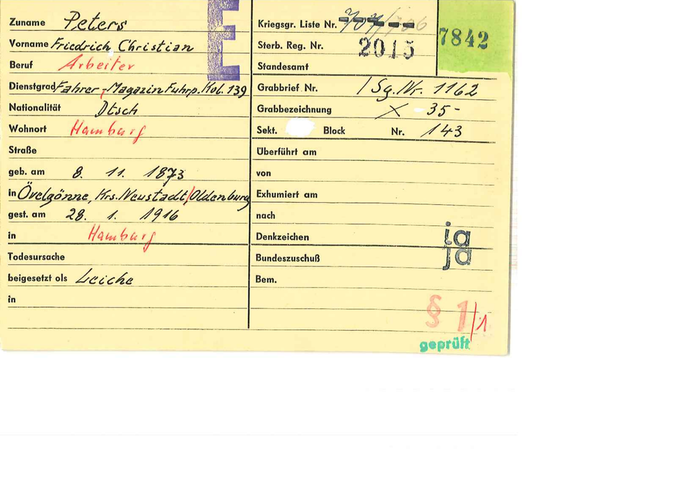 Zuname Peters
Vorname Friedrich Christian
Beruf Arbeiter
Dienstgrad Fahrer, Magazin Fuhrp. Kol. 139
Nationalität Dtsch
Wohnort Hamburg
Straße
geb. am 8. 11. 1873
in Övelgönne, Krs. Neustadt/Oldenburg
gest. am 28. 1. 1916
in Hamburg
Todesursache
beigesetzt als Leiche
in
E
Kriegsgr. Liste Nr.
Sterb. Reg. Nr. 2015
Standesamt
7842
Grabbrief Nr. / Sg. Nr. 1162
Grabbezeichnung X 35-
Sekt. Block Nr. 143
Überführt am
von
Exhumiert am
nach
Denkzeichen ja
Bundeszuschuß ja
Bem.
§ 1/1
geprüft